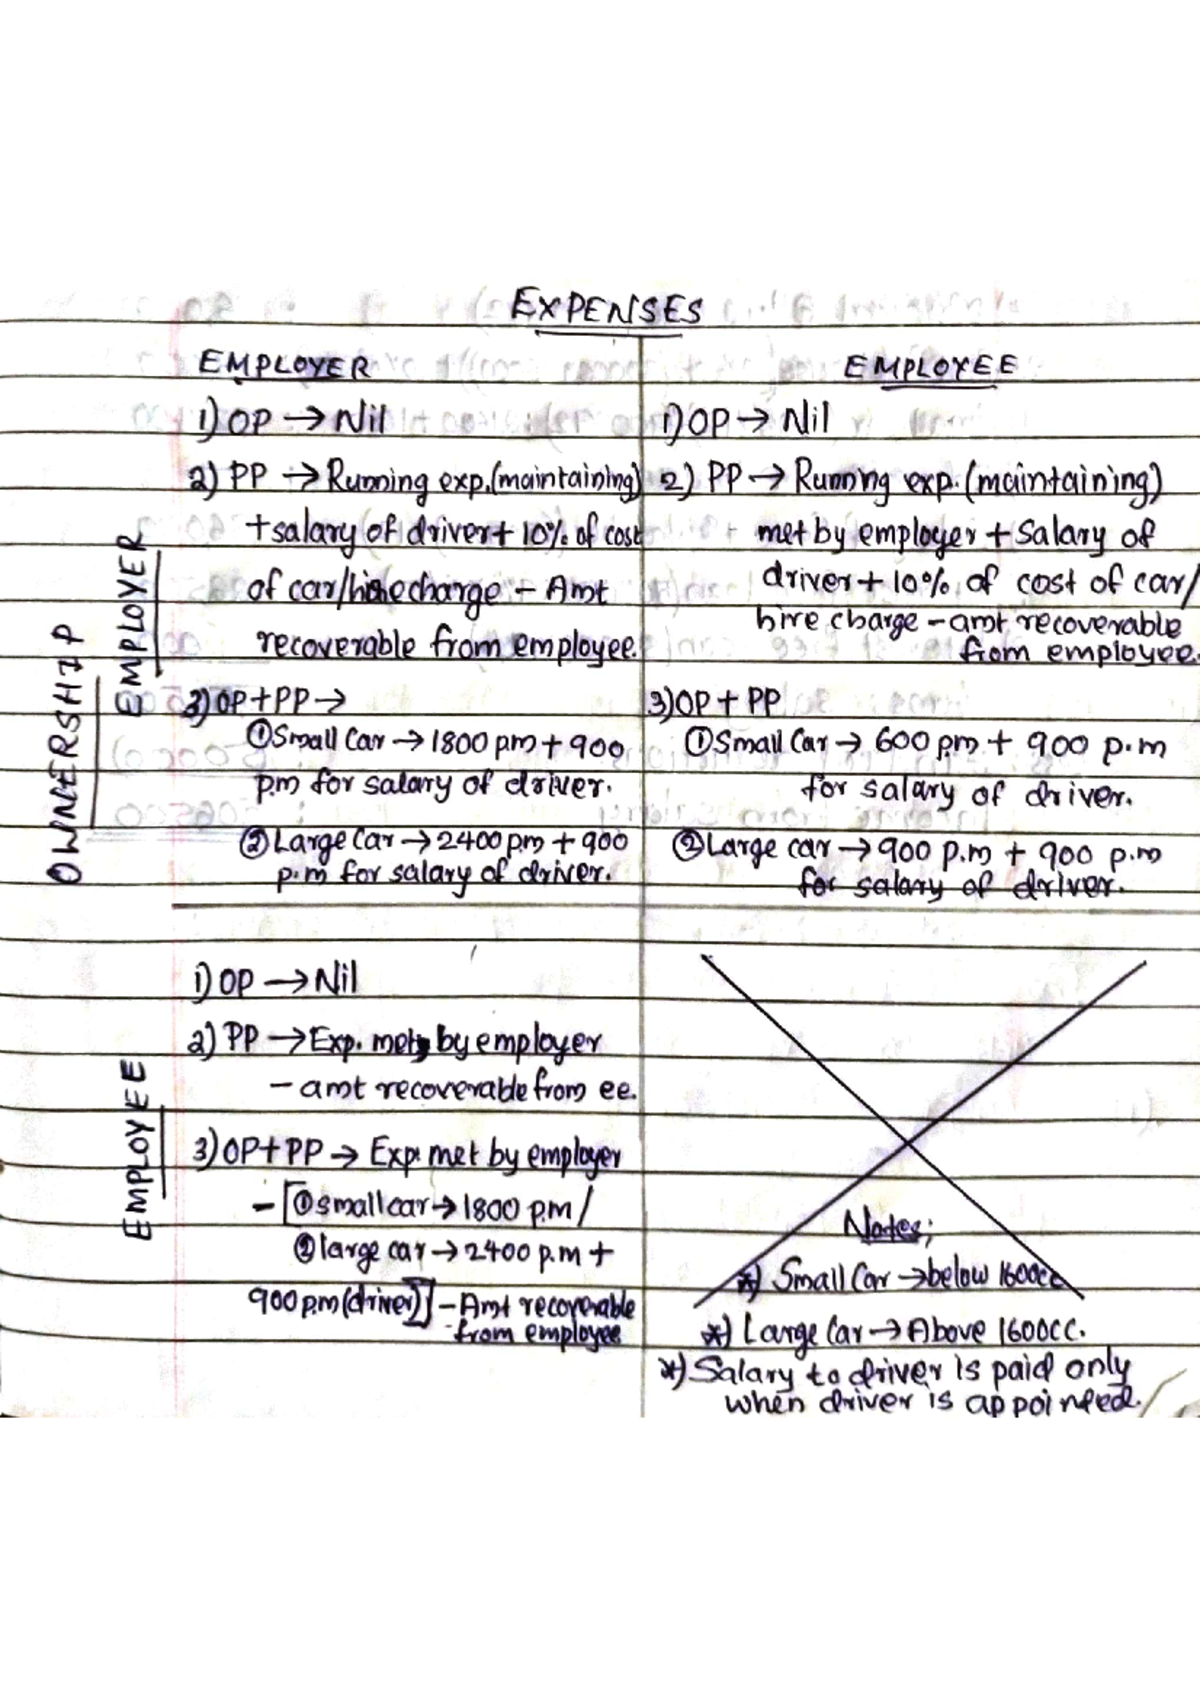 EXPENSES
EMPLOYER
1) OP → Nil
2) PP → Running exp. (maintaining)
+ salary of driver + 10% of cost
of car/hire charge - Amt
recoverable from employee.
3) OP + PP →
① Small Car → 1800 pm + 900
p.m for salary of driver.
② Large Car → 2400 p.m + 900
p.m for salary of driver.
EMPLOYEE
1) OP → Nil
2) PP → Running exp. (maintaining)
met by employer + Salary of
driver + 10% of cost of car/
hire charge - amt recoverable
from employee.
3) OP + PP
① Small Car → 600 p.m + 900 p.m
for salary of driver.
② Large car → 900 p.m + 900 p.m
for salary of driver.
OWNERSHIP
EMPLOYER
1) OP → Nil
2) PP → Exp. met by employer
- amt recoverable from ee.
3) OP + PP → Exp. met by employer
- [① small car → 1800 p.m /
② large car → 2400 p.m +
900 p.m (driver)] - Amt recoverable
from employee
EMPLOYEE
Notes;
*) Small Car → below 1600cc
*) Large Car → Above 1600cc.
*) Salary to driver is paid only
when driver is appointed.